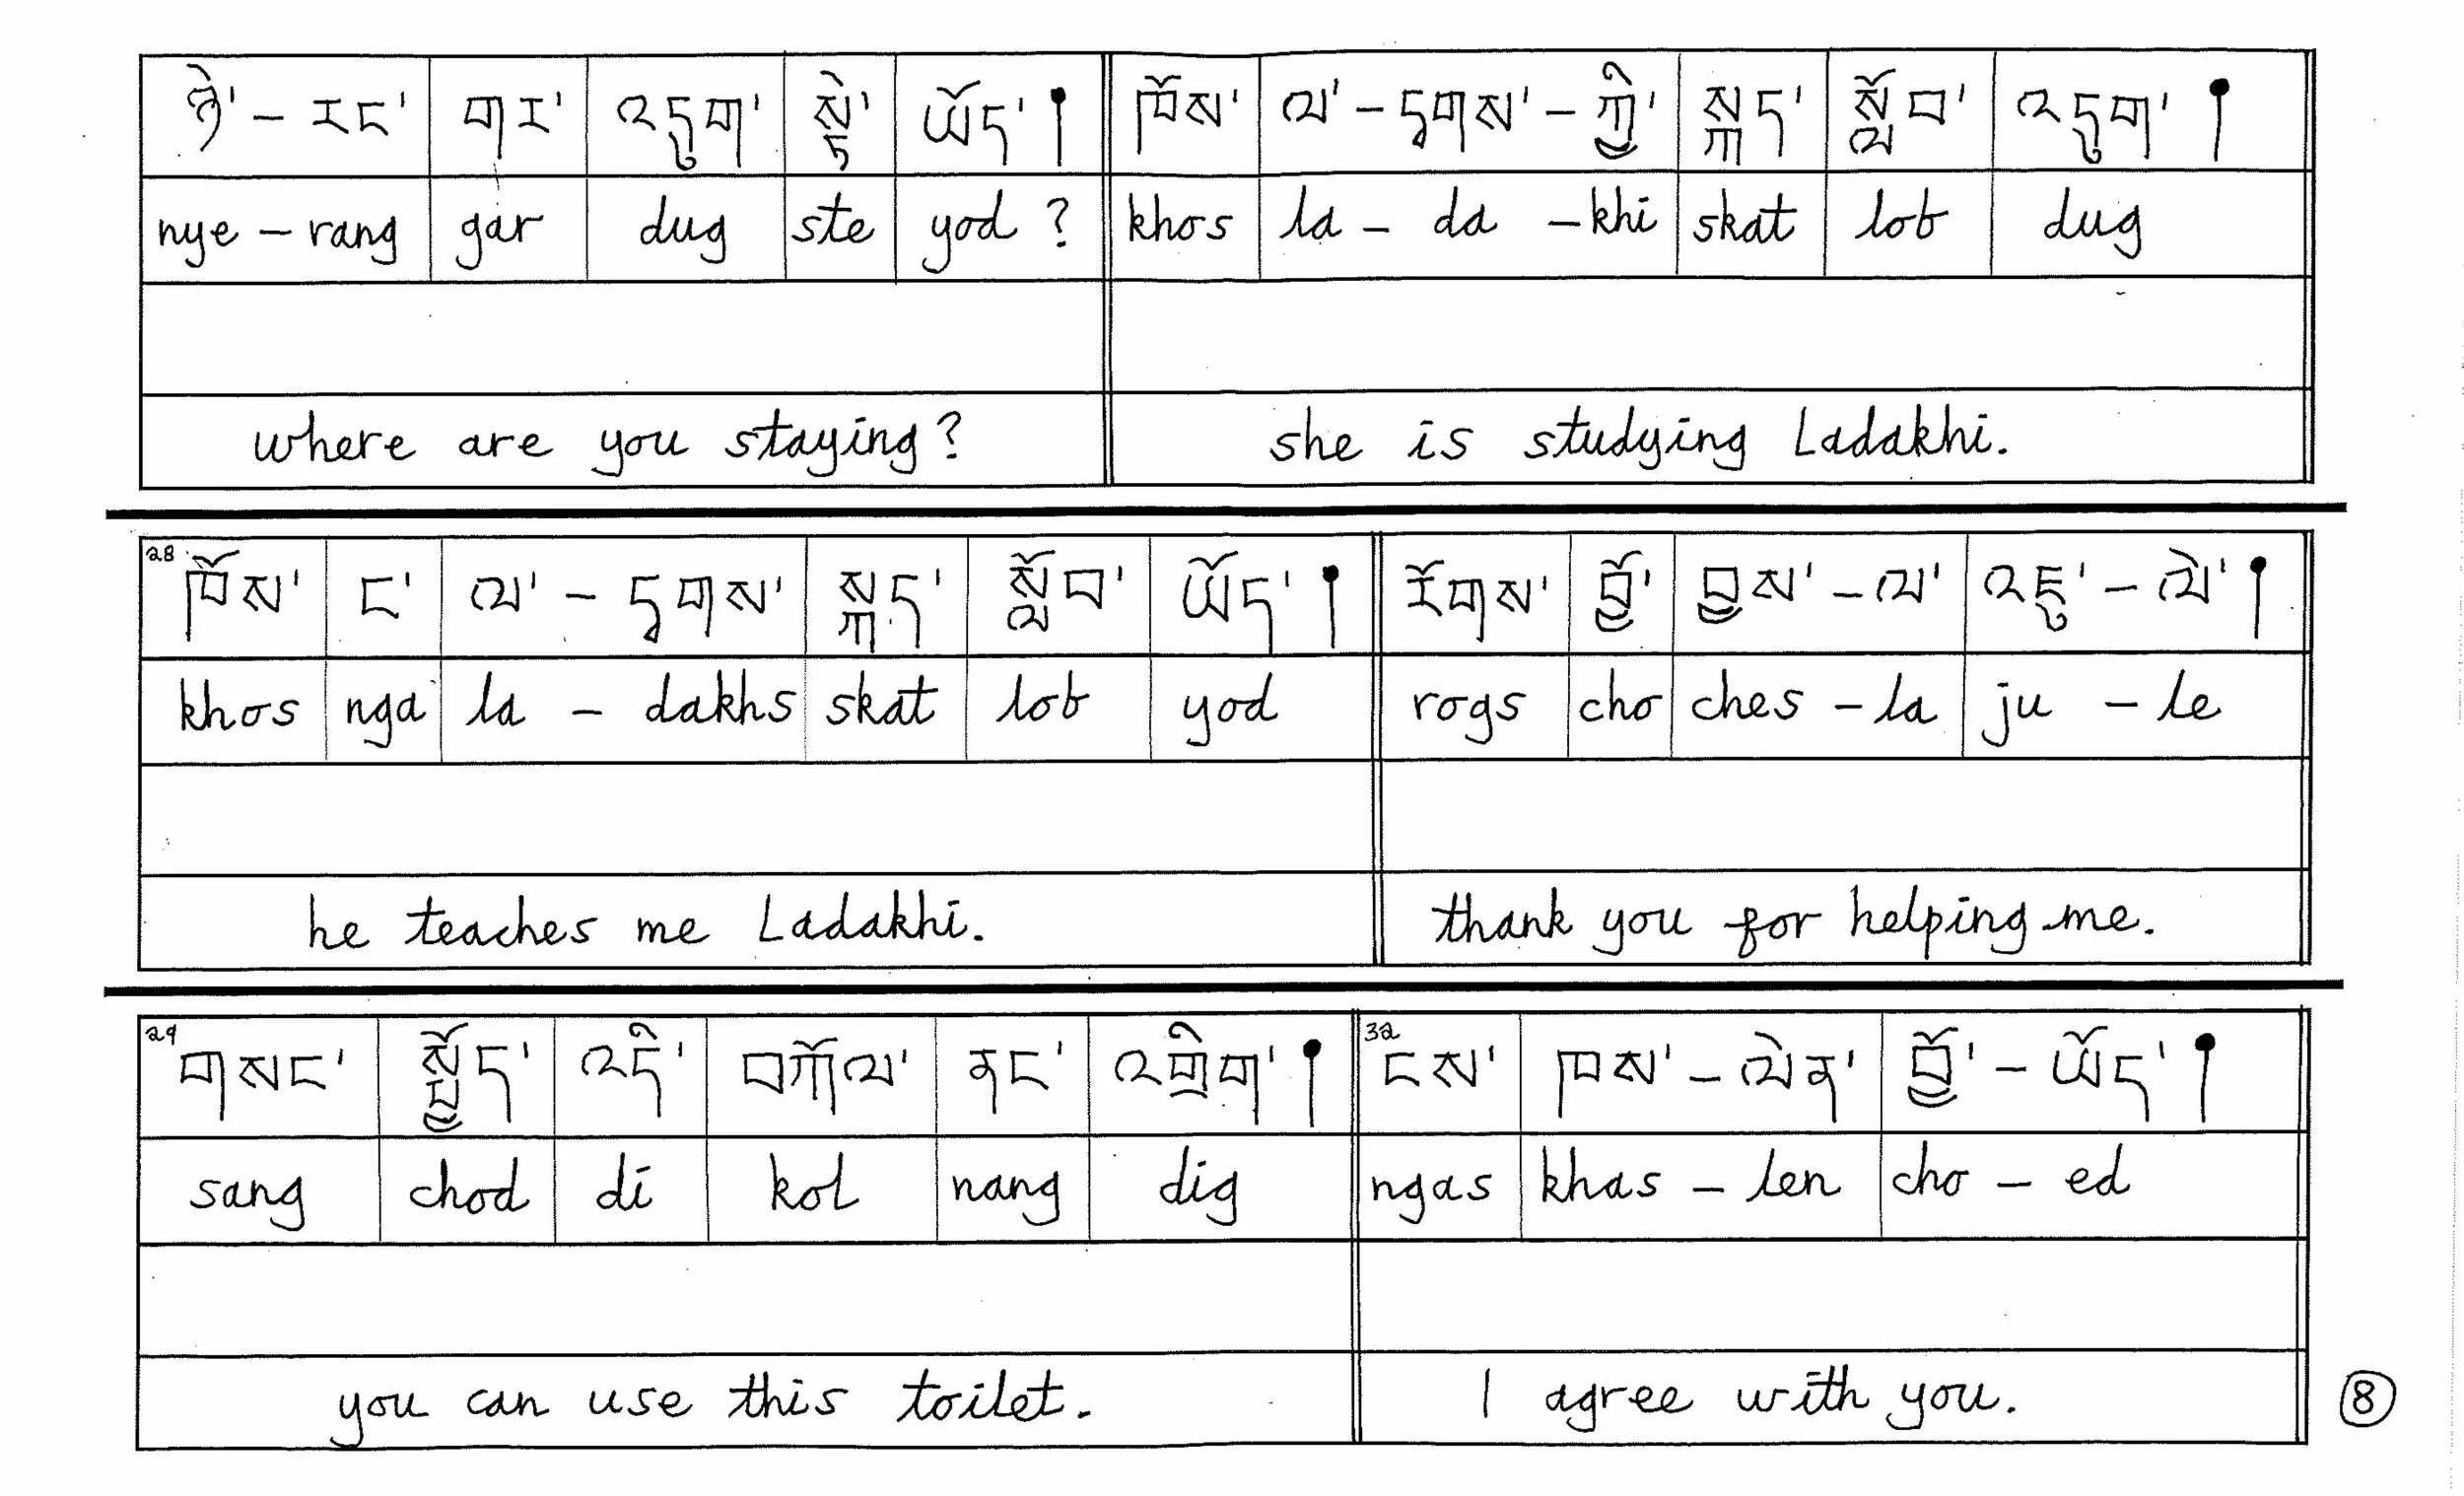 ཉེ་ – རང་ གར་ འདུག་ སྟེ་ ཡོད་། ཁོས་ ལ་ – དྭགས་ – ཀྱི་ སྐད་ སློབ་ འདུག་།
nye – rang gar dug ste yod ? khos la – da – khi skat lob dug
where are you staying? she is studying Ladakhi.
28 ཁོས་ ང་ ལ་ – དྭགས་ སྐད་ སློབ་ ཡོད་། རོགས་ བྱོ་ བྱས་ – ལ་ འཇུ་ – ལེ་།
khos nga la – dakhs skat lob yod rogs cho ches – la ju – le
he teaches me Ladakhi. thank you for helping me.
29 གསང་ སྤྱོད་ འདི་ བཀོལ་ ནང་ འགྲིག་། 32 ངས་ ཁས་ – ལེན་ བྱོ་ – ཡོད་།
sang chod di kol nang dig ngas khas – len cho – ed
you can use this toilet. I agree with you.
8